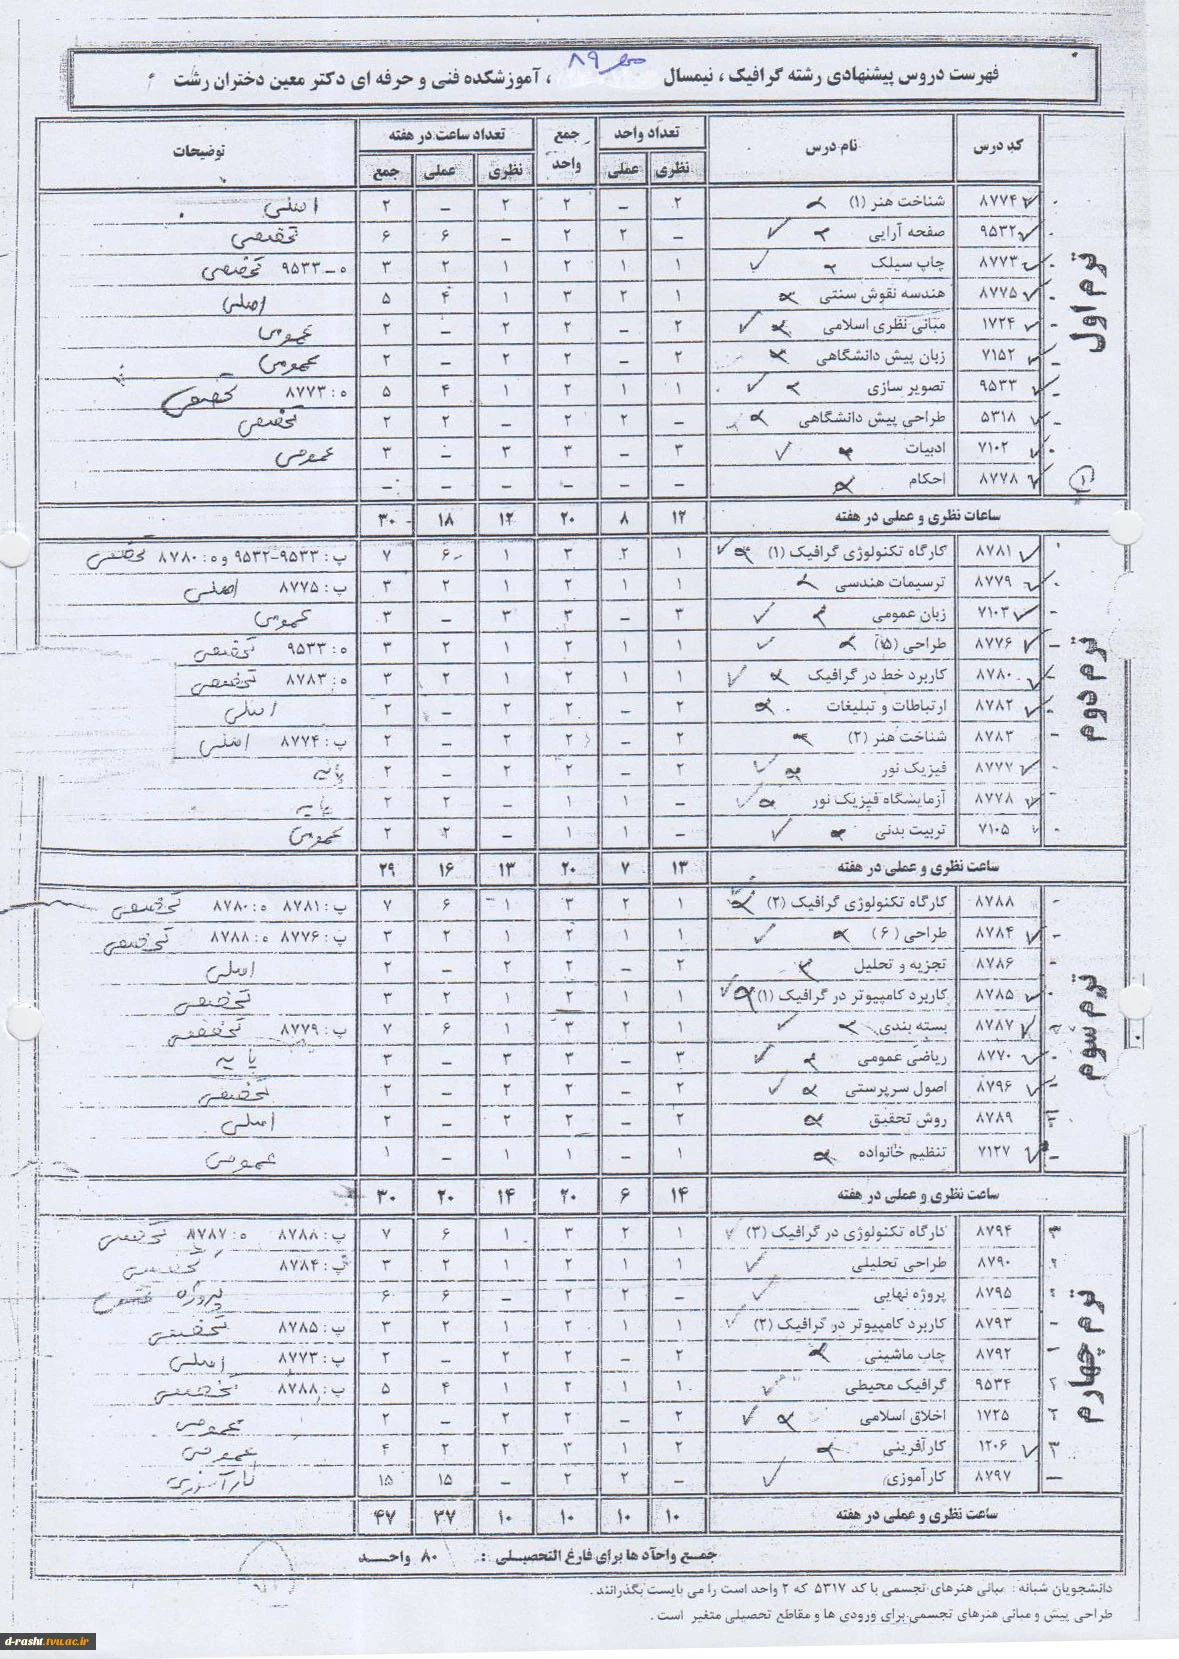 فهرست دروس پیشنهادی رشته گرافیک ، نیمسال ۸۹ ، آموزشکده فنی و حرفه ای دکتر معین دختران رشت
کد درس نام درس تعداد واحد جمع واحد تعداد ساعت در هفته توضیحات
نظری عملی نظری عملی جمع
ترم اول
۸۷۷۴ شناخت هنر (۱) ۲ – ۲ ۲ – ۲ اصلی
۹۵۳۲ صفحه آرایی – ۲ ۲ – ۶ ۶ تخصصی
۸۷۷۳ چاپ سیلک ۱ ۱ ۲ ۱ ۲ ۳ ه–۹۵۳۳ تخصصی
۸۷۷۵ هندسه نقوش سنتی ۱ ۲ ۳ ۱ ۴ ۵ اصلی
۱۷۲۴ مبانی نظری اسلامی ۲ – ۲ ۲ – ۲ عمومی
۷۱۵۲ زبان پیش دانشگاهی ۲ – ۲ ۲ – ۲ عمومی
۹۵۳۳ تصویر سازی ۱ ۱ ۲ ۱ ۴ ۵ ه: ۸۷۷۳ تخصصی
۵۳۱۸ طراحی پیش دانشگاهی – ۲ ۲ – ۲ ۲ تخصصی
۷۱۰۲ ادبیات ۳ – ۳ ۳ – ۳ عمومی
۸۷۷۸ احکام – – – – – –
ساعات نظری و عملی در هفته ۱۲ ۸ ۲۰ ۱۲ ۱۸ ۳۰
ترم دوم
۸۷۸۱ کارگاه تکنولوژی گرافیک (۱) ۱ ۲ ۳ ۱ ۶ ۷ پ: ۹۵۳۳–۹۵۳۲ و ه: ۸۷۸۰ تخصصی
۸۷۷۹ ترسیمات هندسی ۱ ۱ ۲ ۱ ۲ ۳ پ: ۸۷۷۵ اصلی
۷۱۰۳ زبان عمومی ۳ – ۳ ۳ – ۳ عمومی
۸۷۷۶ طراحی (۵) ۱ ۱ ۲ ۱ ۲ ۳ ه: ۹۵۳۳ تخصصی
۸۷۸۰ کاربرد خط در گرافیک ۱ ۱ ۲ ۱ ۲ ۳ ه: ۸۷۸۳ تخصصی
۸۷۸۲ ارتباطات و تبلیغات ۲ – ۲ ۲ – ۲ اصلی
۸۷۸۳ شناخت هنر (۲) ۲ – ۲ ۲ – ۲ پ: ۸۷۷۴ اصلی
۸۷۷۷ فیزیک نور ۲ – ۲ ۲ – ۲ پایه
۸۷۷۸ آزمایشگاه فیزیک نور – ۱ ۱ – ۲ ۲ پایه
۷۱۰۵ تربیت بدنی – ۱ ۱ – ۲ ۲ عمومی
ساعت نظری و عملی در هفته ۱۳ ۷ ۲۰ ۱۳ ۱۶ ۲۹
ترم سوم
۸۷۸۸ کارگاه تکنولوژی گرافیک (۲) ۱ ۲ ۳ ۱ ۶ ۷ پ: ۸۷۸۱ ه: ۸۷۸۰ تخصصی
۸۷۸۴ طراحی (۶) ۱ ۱ ۲ ۱ ۲ ۳ پ: ۸۷۷۶ ه: ۸۷۸۸ تخصصی
۸۷۸۶ تجزیه و تحلیل ۲ – ۲ ۲ – ۲ اصلی
۸۷۸۵ کاربرد کامپیوتر در گرافیک (۱) ۱ ۱ ۲ ۱ ۲ ۳ تخصصی
۸۷۸۷ بسته بندی ۱ ۲ ۳ ۱ ۶ ۷ پ: ۸۷۷۹ تخصصی
۸۷۷۰ ریاضی عمومی ۳ – ۳ ۳ – ۳ پایه
۸۷۹۶ اصول سرپرستی ۲ – ۲ ۲ – ۲ تخصصی
۸۷۸۹ روش تحقیق ۲ – ۲ ۲ – ۲ اصلی
۷۱۲۷ تنظیم خانواده ۱ – ۱ ۱ – ۱ عمومی
ساعت نظری و عملی در هفته ۱۴ ۶ ۲۰ ۱۴ ۲۰ ۳۰
ترم چهارم
۸۷۹۴ کارگاه تکنولوژی در گرافیک (۳) ۱ ۲ ۳ ۱ ۶ ۷ پ: ۸۷۸۸ ه: ۸۷۸۷ تخصصی
۸۷۹۰ طراحی تحلیلی ۱ ۱ ۲ ۱ ۲ ۳ پ: ۸۷۸۴ تخصصی
۸۷۹۵ پروژه نهایی – ۲ ۲ – ۶ ۶ پروژه
۸۷۹۳ کاربرد کامپیوتر در گرافیک (۲) ۱ ۱ ۲ ۱ ۲ ۳ پ: ۸۷۸۵ تخصصی
۸۷۹۲ چاپ ماشینی ۲ – ۲ ۲ – ۲ پ: ۸۷۷۳ اصلی
۹۵۳۴ گرافیک محیطی ۱ ۱ ۲ ۱ ۴ ۵ پ: ۸۷۸۸ تخصصی
۱۷۲۵ اخلاق اسلامی ۲ – ۲ ۲ – ۲ عمومی
۱۲۰۶ کارآفرینی ۲ ۱ ۳ ۲ ۲ ۴ عمومی
۸۷۹۷ کارآموزی – ۲ ۲ – ۱۵ ۱۵ کارآموزی
ساعت نظری و عملی در هفته ۱۰ ۱۰ ۱۰ ۱۰ ۳۷ ۴۷
جمع واحآد ها برای فارغ التحصیلی : ۸۰ واحـد
دانشجویان شبانه : مبانی هنرهای تجسمی با کد ۵۳۱۷ که ۲ واحد است را می بایست بگذرانند .
طراحی پیش و مبانی هنرهای تجسمی برای ورودی ها و مقاطع تحصیلی متغیر است .
d-rasht.tvu.ac.ir